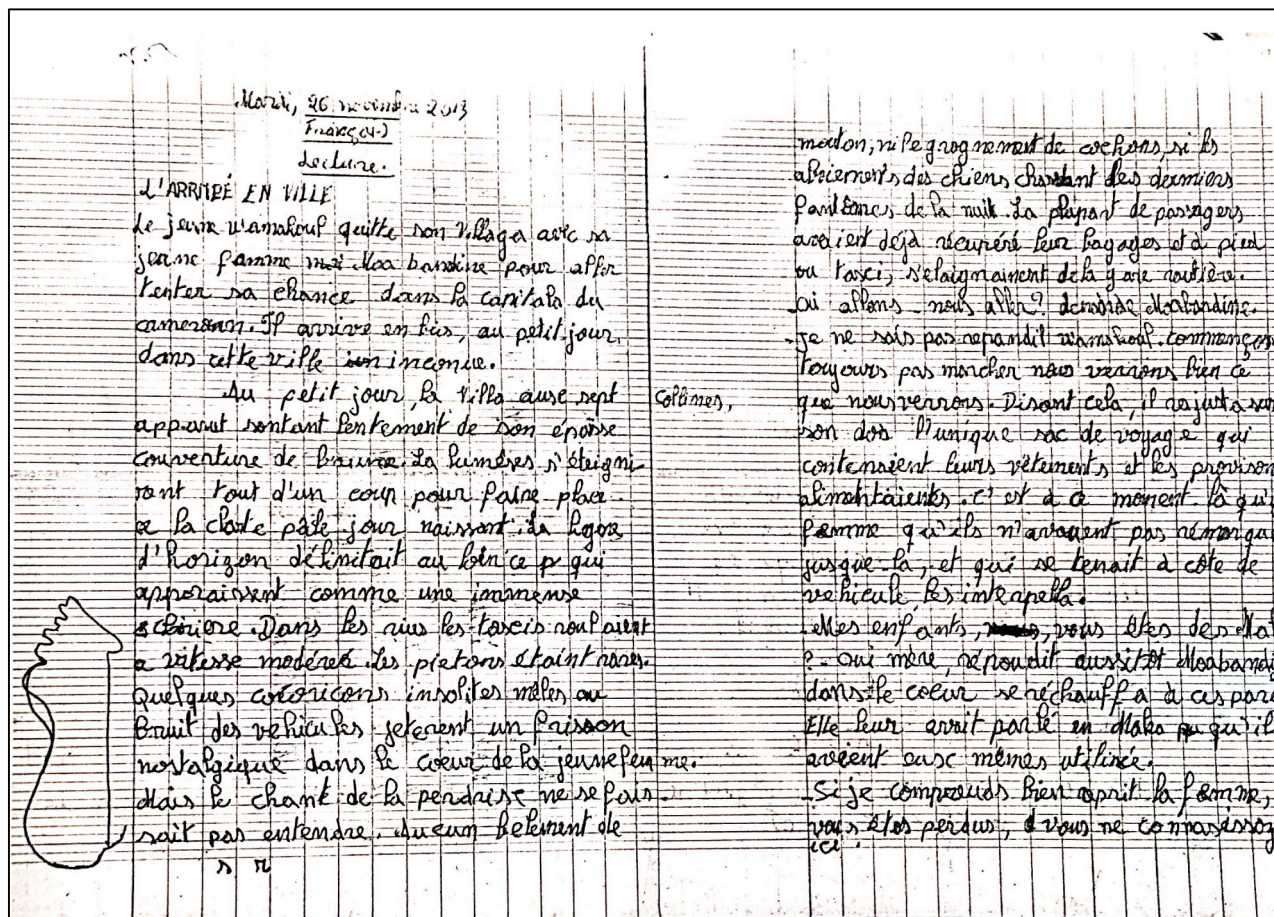 Mardi, 26 novembre 2013
Français
Lecture.
L'ARRIVÉ EN VILLE
Le jeune wamakoul quitte son villaga avec sa
jeune famme Moa bandine pour aller
tenter sa chance dans la capitala du
cameroun. Il arrive en bis, au petit jour,
dans cette ville inconnue.
Au petit jour, la villa ause sept collines,
apparut sontant lentement de son épaisse
couverture de brume. La lumères s'éteigni
rent tout d'un coup pour faine place
a la clarte pâle jour naissant. La ligne
d'horizon délimitait au loin ce qui
apparaissent comme une immense
Dans les rius les tascis roulaient
a vitesse modéreé. Les pietons étaint rares.
Quelques cocoricons insolites mêles au
bruit des vehicules jeterent un frisson
nostalgique dans le coeur de la jeune femme.
Mais le chant de la perdrise ne se fais
sait pas entendre. Aucun belement de
s r
mouton, ni le grognement de cochons, si les
aboiements des chiens chassant des derniers
fantômes de la nuit. La plupart de passagers
avaient déjà récupéré leur bagages et à pied
ou tasci, s'elaignaiment de la gare routière.
- où allons-nous aller? demande Moabandine.
- Je ne sais pas repandit wamakoul. commençon
toujours pas marcher nous verrons bien ce
que nous verrons. Disant cela, il rajusta sur
son dos l'unique sac de voyage qui
contensient leurs vêtements et les provison
alimentaients. C'est à ce moment là qu'
famme qu'ils n'avaient pas remarqu
jusque-là, et qui se tenait à côte de
vehicule, les interpella.
- Mes enfants, vous êtes des Mak
? - oui mère, répoudit aussitôt Moabandi
dans le coeur se réchauffa à ces paro
Elle leur avait parlé en Maka qu'il
avaient eusc mêmes utilisée.
- Si je comprends bien aprit la famme,
vous êtes perdus, d vous ne connasissez
ici.